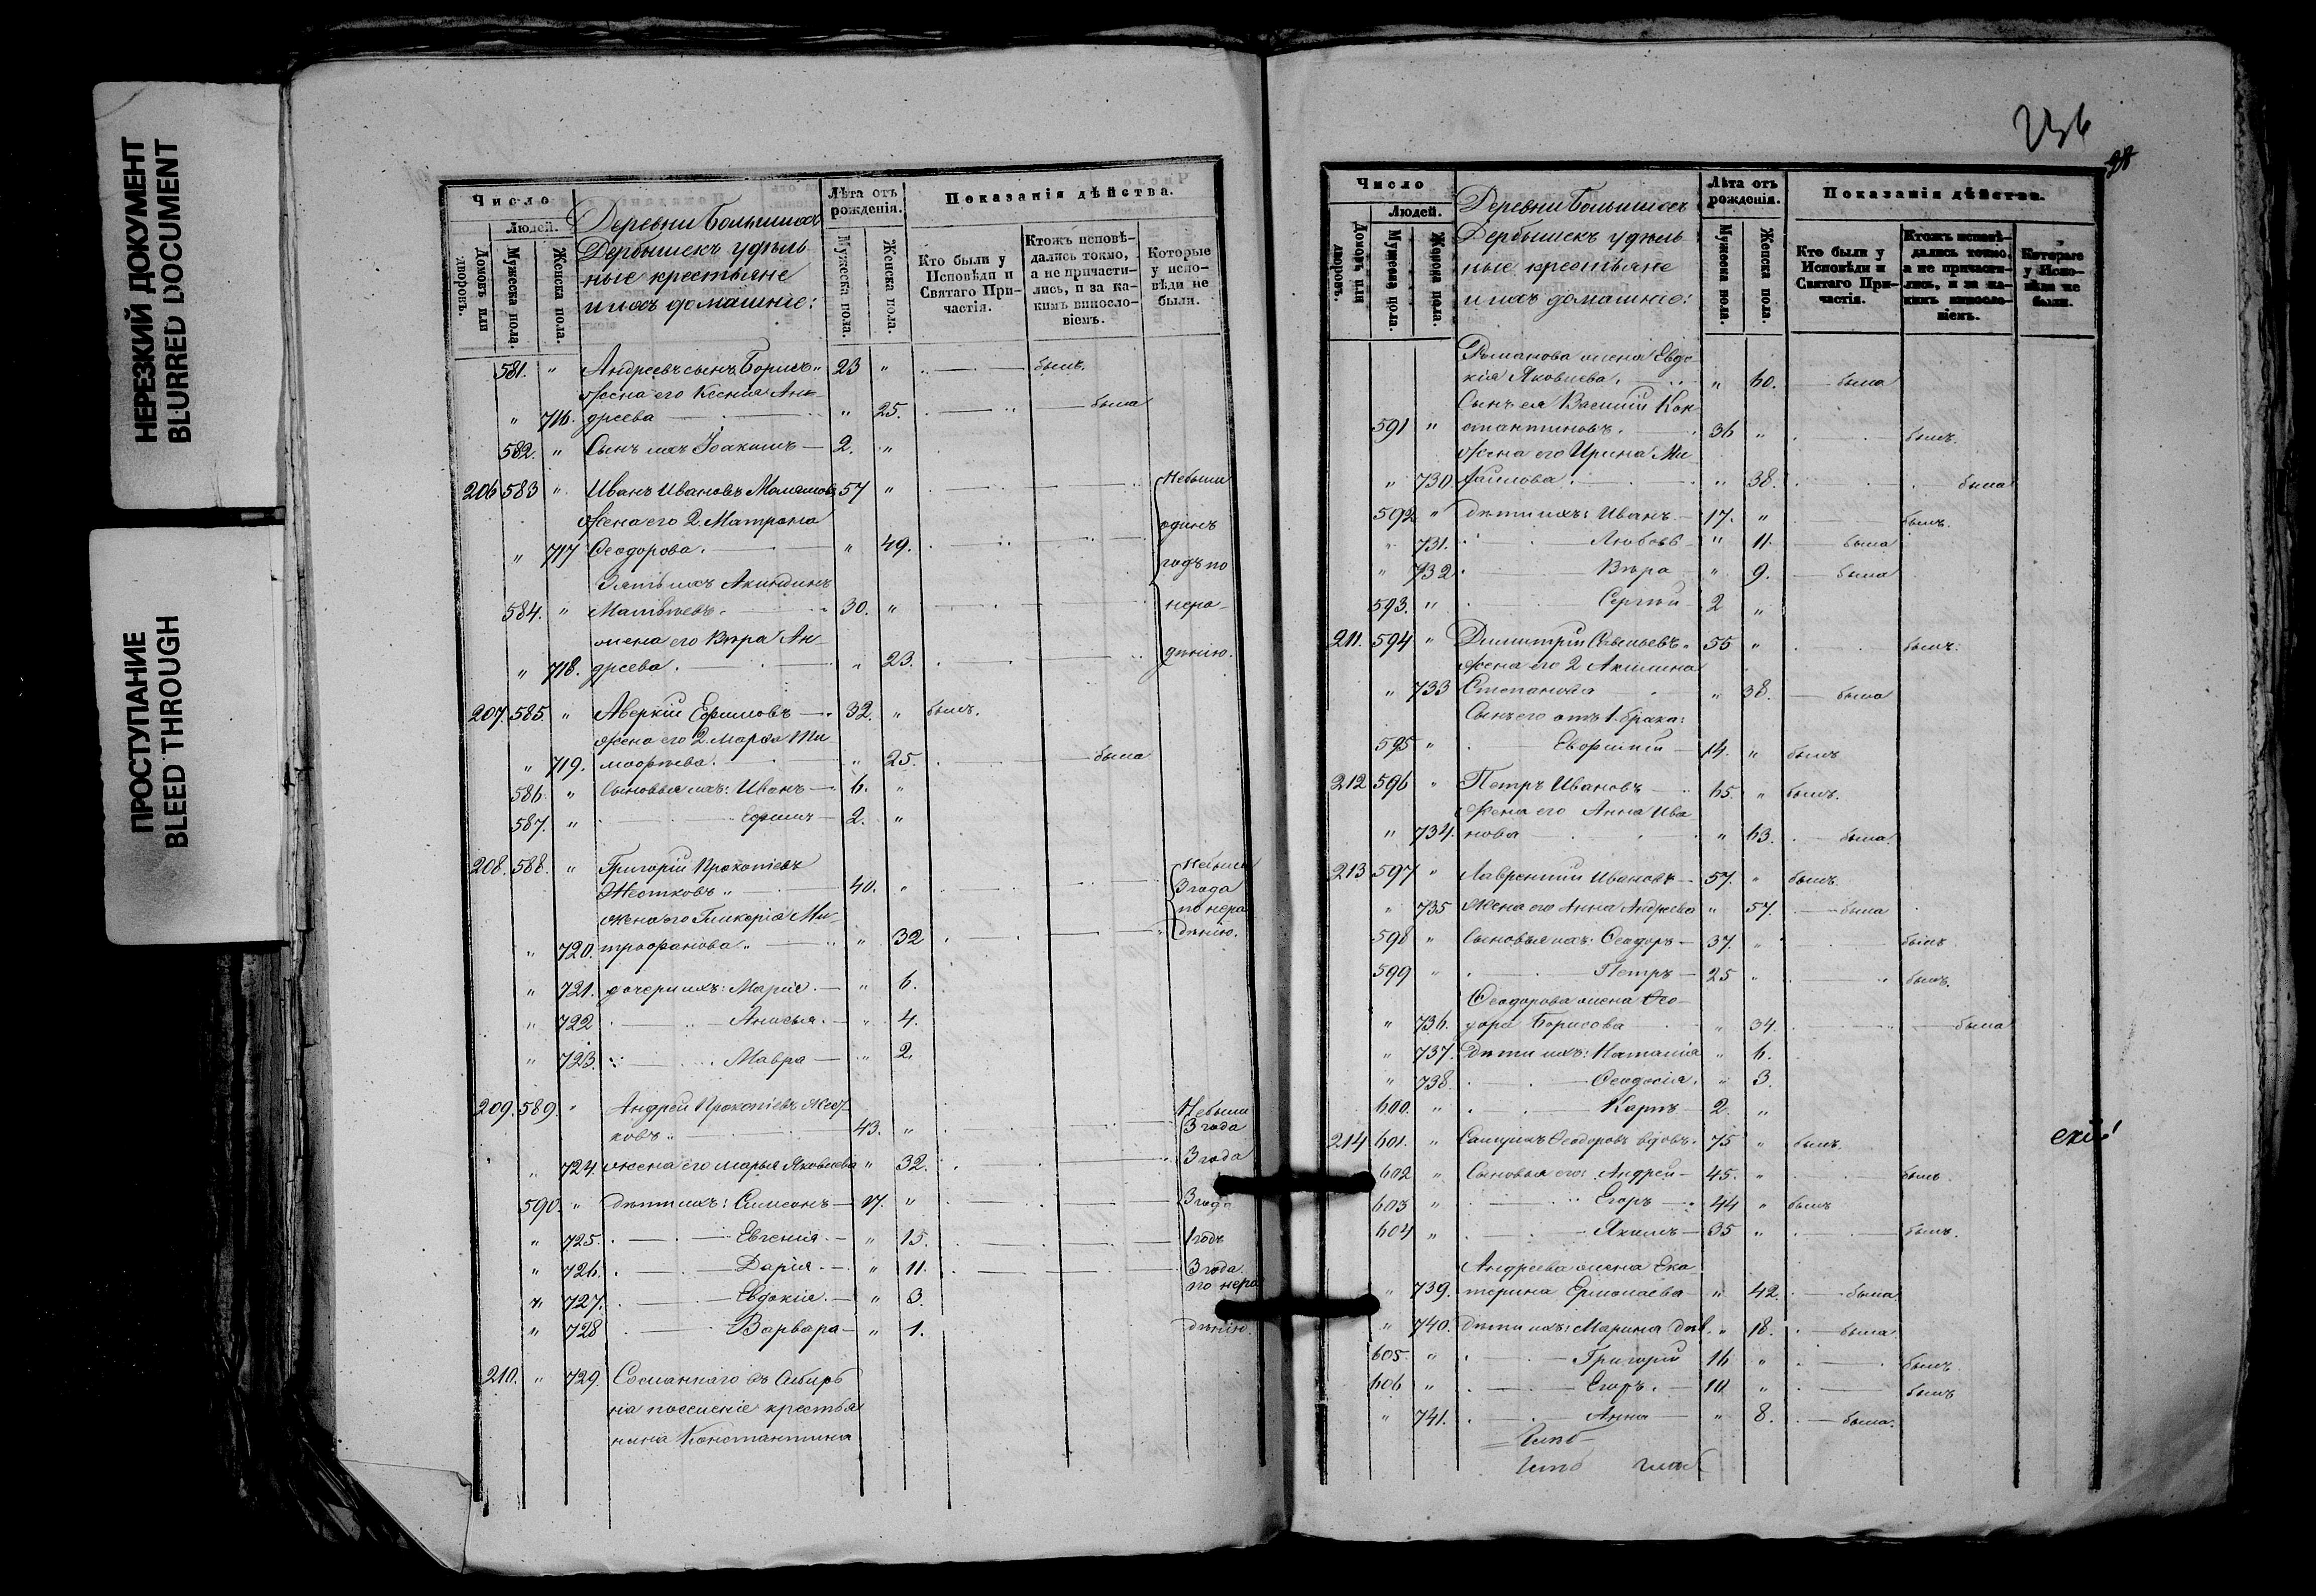 НЕРЕЗКИЙ ДОКУМЕНТ
BLURRED DOCUMENT
ПРОСТУПАНИЕ
BLEED THROUGH
Число
Людей.
Домовъ или дворовъ.
Мужеска пола.
Женска пола.
Деревни Большихъ
Дербышекъ удѣль
ные крестьяне
и ихъ домашніе:
Лѣта отъ рожденія.
Мужеска пола.
Женска пола.
Показанія дѣйства.
Кто были у Исповѣди и Святаго Причастія.
Ктожъ исповѣдались токмо, а не причастились, и за какимъ винословіемъ.
Которые у исповѣди не были.
581. " Андреевъ сынъ Борисъ " 23 " былъ.
Жена его Ксенія Ан-
" 716. дреева " 25. была
582. " Сынъ ихъ Іоакимъ 2. "
206 583 " Иванъ Ивановъ 57 " Небыли
Жена его 2. Матрона одинъ
" 717 Ѳеодорова. " 49. годъ по
Зять ихъ Акиндинъ
584. " Матвѣевъ. 30. " нера-
жена его Вѣра Ан-
" 718. дреева. " 23. дѣнію.
207. 585. " Аверкій Ефимовъ 32. " былъ.
Жена его 2. Марѳа Ти-
" 719. моѳѣева. " 25. была
586. " Сыновья ихъ: Иванъ 6. "
587. " Ефимъ 2. "
208. 588. " Григорій Прокопіевъ Небыли
Жестковъ " 40. " 3 года
жена его Гликерія Ми- по нера
" 720. трофанова " " 32 дѣнію.
" 721. дочери ихъ: Марія. " 6.
" 722 Анисья. " 4.
" 723. Мавра " 2.
209. 589. " Андрей Прокопіевъ Жест- Небыли
ковъ " 43. " 3 года
" 724. жена его Марья Яковлева " 32. 3 года
590. " Дѣти ихъ: Симеонъ 17. " 3 года
" 725. Евгенія. " 15. 1 годъ
" 726. Дарія. " 11. 3 года
по нера
" 727. Евдокія. " 3.
" 728 Варвара " 1. дѣнію.
210. " 729. Сосланнаго въ Сибирь
на поселеніе крестья
нина Константина
236
Число
Людей.
Домовъ или дворовъ.
Мужеска пола.
Женска пола.
Деревни Большихъ
Дербышекъ удѣль
ные крестьяне
и ихъ домашніе:
Лѣта отъ рожденія.
Мужеска пола.
Женска пола.
Показанія дѣйства.
Кто были у Исповѣди и Святаго Причастія.
Ктожъ исповѣдались токмо, а не причастились, и за какимъ винословіемъ.
Которые у Исповѣди не были.
Романова жена Евдо-
кія Яковлева. " 60. была
Сынъ ея Василій Кон-
591 " стантиновъ. 36 " былъ.
Жена его Ирина Ми-
" 730. хаилова. " 38. была
592 " Дѣти ихъ: Иванъ 17. " былъ.
" 731. Любовь " 11. была
" 732 Вѣра " 9. была
593. " Сергѣй 2 "
211. 594 " Димитрій 55 " былъ.
Жена его 2 Акилина
" 733 Степанова " 38. была
Сынъ его отъ 1. брака:
595 " 14. " былъ
212 596 " Петръ Ивановъ 65. " былъ.
Жена его Анна Ива
" 734. нова " 63. была.
213 597 " Лаврентій Ивановъ 57. " былъ.
" 735 Жена его Анна Андреева " 57. была
598 " Сыновья ихъ: Ѳеодоръ 37. " былъ
599 " Петръ 25 " былъ.
Ѳеодорова жена Ѳео-
" 736. дора Борисова " 34. была
" 737. Дѣти ихъ: Наталія " 6.
" 738. Ѳеодосія. " 3.
600. " Карпъ 2. "
214 601. " Ѳеодоровъ вдовъ. 75 " былъ.
602 " Сыновья его: Андрей 45. " былъ.
603 " Егоръ 44 " былъ
604 " Якимъ 35 " былъ.
Андреева жена Ека-
" 739. терина Ермолаева " 42. была
" 740. Дѣти ихъ: Марина дѣв. " 18. была
605. " Григорій 16 " былъ
606 " Егоръ. 10 " былъ
" 741. Анна " 8. была.